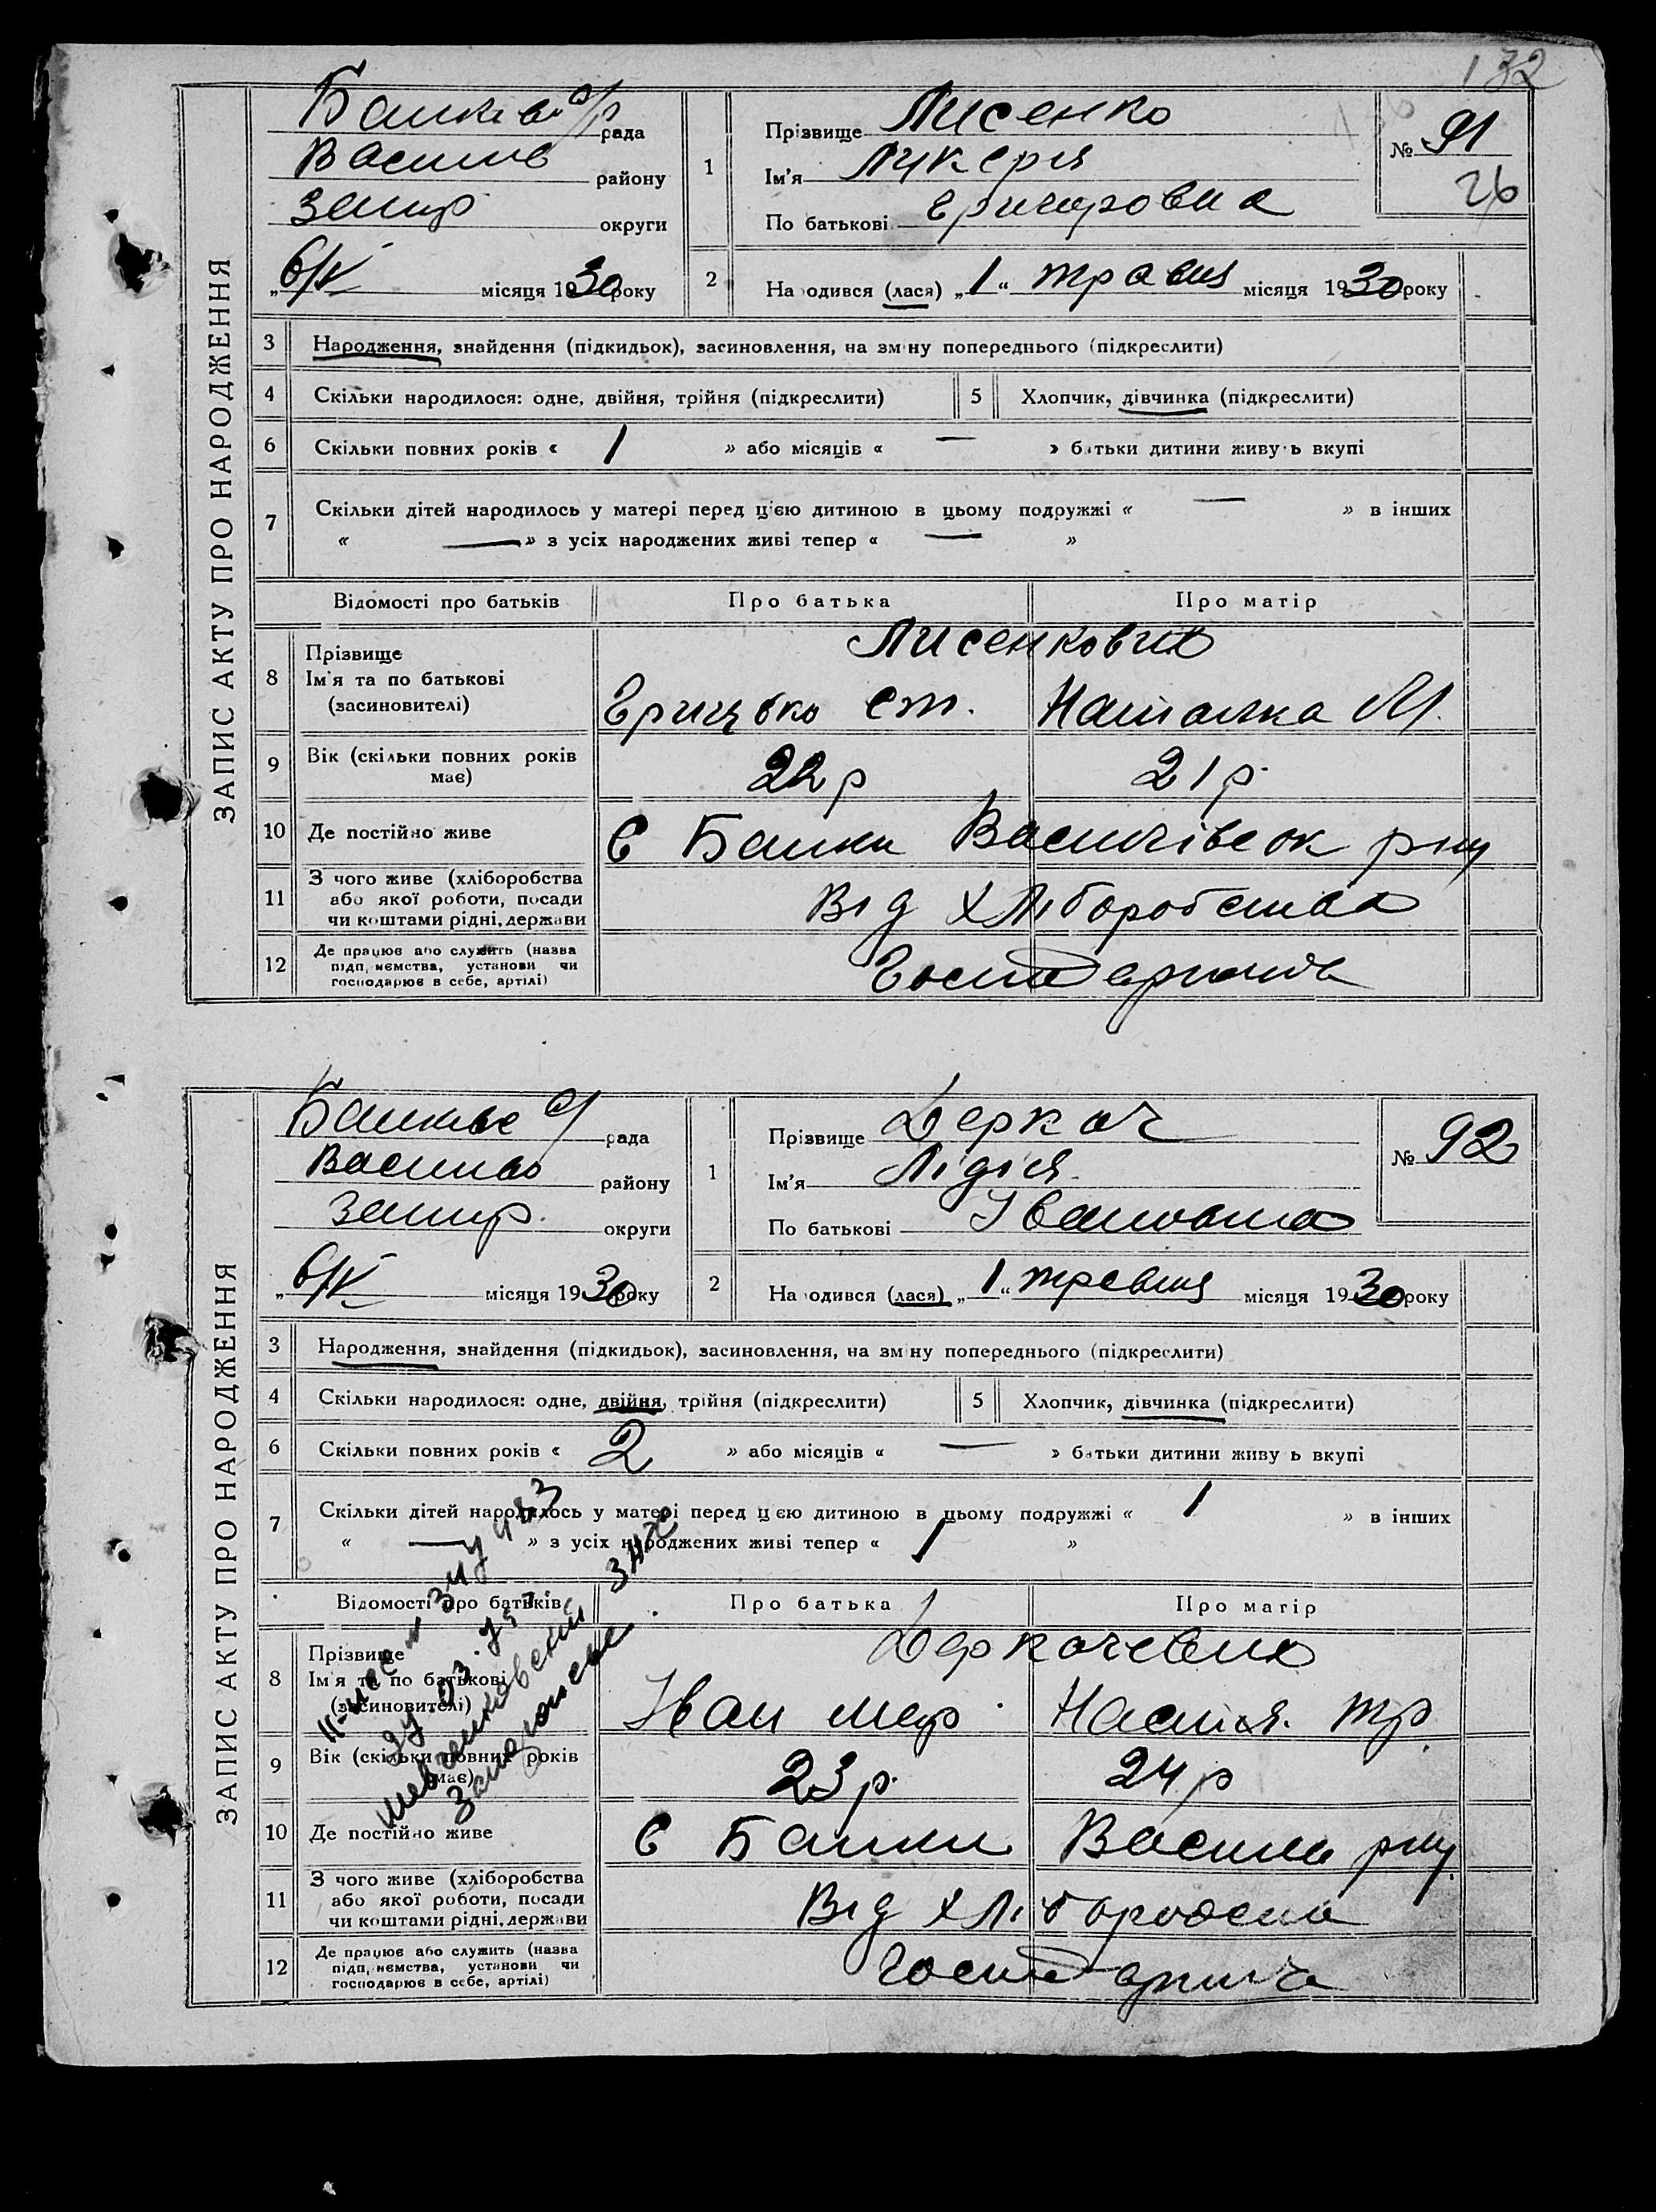 132
ЗАПИС АКТУ ПРО НАРОДЖЕННЯ
рада
Василів району
Запор округи
„6/V місяця 1930 року
1
Прізвище Лисенко
Ім'я Лукерія
По батькові Грицуровна
№ 91
26
2
На одився (лася) „1“ травня місяця 1930 року
3 Народження, знайдення (підкидьок), засиновлення, на зміну попереднього (підкреслити)
4 Скільки народилося: одне, двійня, трійня (підкреслити)
5 Хлопчик, дівчинка (підкреслити)
6 Скільки повних років « 1 » або місяців « — » батьки дитини живуть вкупі
7 Скільки дітей народилось у матері перед цією дитиною в цьому подружжі « — » в інших
« — » з усіх народжених живі тепер « — »
Відомості про батьків Про батька Про матір
8 Прізвище
Ім'я та по батькові
(засиновителі)
Лисенкових
Грицько Ст. Наталка М.
9 Вік (скільки повних років має) 22 р 21 р.
10 Де постійно живе С Балки Василівськ р-ну
11 З чого живе (хліборобства
або якої роботи, посади
чи коштами рідні, держави
Від хліборобства
12 Де працює або служить (назва
підп,иємства, установи чи
господарює в себе, артілі)
ЗАПИС АКТУ ПРО НАРОДЖЕННЯ
рада
району
Запор. округи
„6/V місяця 1930 року
1
Прізвище Деркач
Ім'я Лідія
По батькові Івановна
№ 92
2
На одився (лася) „1“ травня місяця 1930 року
3 Народження, знайдення (підкидьок), засиновлення, на зміну попереднього (підкреслити)
4 Скільки народилося: одне, двійня, трійня (підкреслити)
5 Хлопчик, дівчинка (підкреслити)
6 Скільки повних років « 2 » або місяців « — » батьки дитини живу ь вкупі
7 Скільки дітей народилось у матері перед цією дитиною в цьому подружжі « 1 » в інших
« — » з усіх народжених живі тепер « 1 »
Відомості про батьків Про батька Про матір
8 Прізвище
Ім'я та по батькові
(засиновителі)
Деркачевих
Іван Мар. Настя. Тр.
9 Вік (скільки повних років має) 23 р. 24 р
10 Де постійно живе С Балки Васили р-ну
11 З чого живе (хліборобства
або якої роботи, посади
чи коштами рідні, держави
Від
12 Де працює або служить (назва
підп,иємства, установи чи
господарює в себе, артілі)